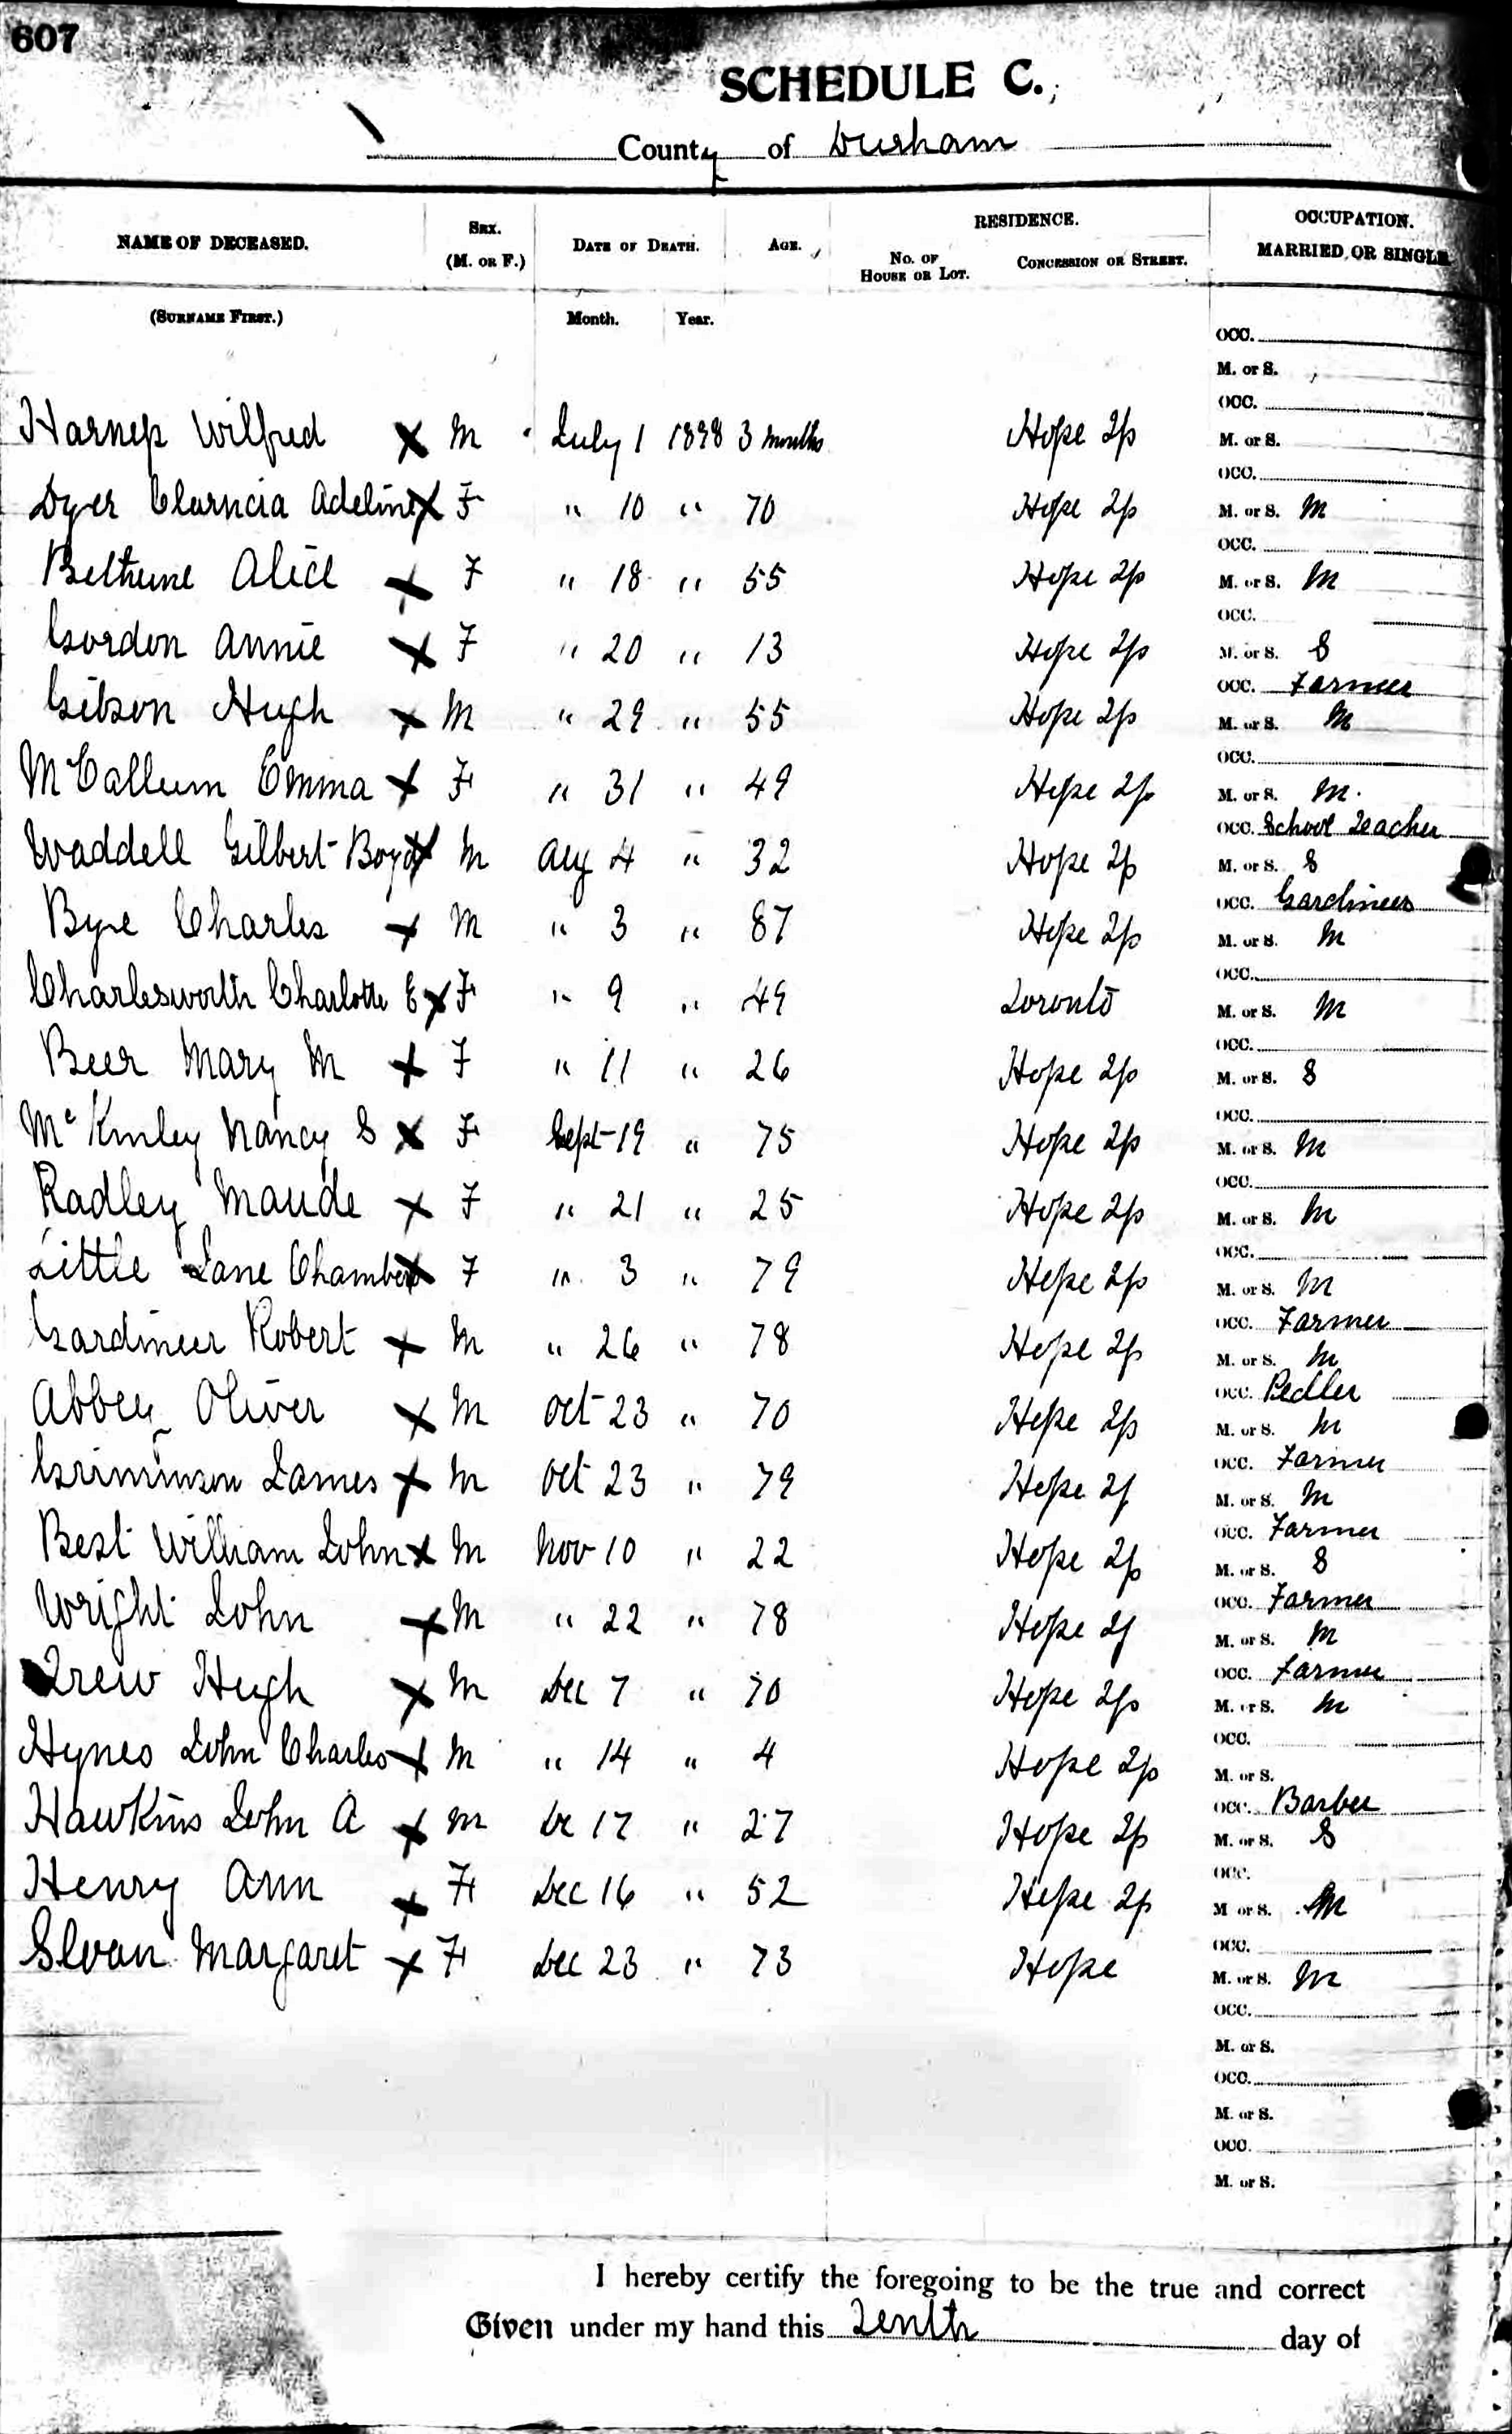 607
SCHEDULE C.
County of Durham
NAME OF DECEASED. SEX. (M. OR F.) DATE OF DEATH. AGE. RESIDENCE. No. OF HOUSE OR LOT. CONCESSION OR STREET. OCCUPATION. MARRIED OR SINGLE
(SURNAME FIRST.) Month. Year.
OCC.
M. or S.
OCC.
Harness Wilfred X M July 1 1898 3 months Hope Tp M. or S.
OCC.
Dyer Clarncia Adeline X F " 10 " 70 Hope Tp M. or S. M
OCC.
Bethune Alice X F " 18 " 55 Hope Tp M. or S. M
OCC.
Gordon Annie X F " 20 " 13 Hope Tp M. or S. S
OCC. Farmer
Gibson Hugh X M " 29 " 55 Hope Tp M. or S. M
OCC.
McCallum Emma X F " 31 " 49 Hope Tp M. or S. M.
OCC. School Teacher
Waddell Gilbert Boyd X M Aug 4 " 32 Hope Tp M. or S. S
OCC. Gardineer
Bye Charles X M " 3 " 87 Hope Tp M. or S. M
OCC.
Charlesworth Charlotte E X F " 9 " 49 Toronto M. or S. M
OCC.
Beer Mary M X F " 11 " 26 Hope Tp M. or S. S
OCC.
McKinley Nancy S X F Sept 19 " 75 Hope Tp M. or S. M
OCC.
Radley Maude X F " 21 " 25 Hope Tp M. or S. M
OCC.
Little Jane Chambers X F " 3 " 79 Hope Tp M. or S. M
OCC. Farmer
Gardineer Robert X M " 26 " 78 Hope Tp M. or S. M
OCC. Pedler
Abbey Oliver X M Oct 23 " 70 Hope Tp M. or S. M
OCC. Farmer
Grimmson James X M Oct 23 " 79 Hope Tp M. or S. M
OCC. Farmer
Best William John X M Nov 10 " 22 Hope Tp M. or S. S
OCC. Farmer
Wright John X M " 22 " 78 Hope Tp M. or S. M
OCC. Farmer
Trew Hugh X M Dec 7 " 70 Hope Tp M. or S. M
OCC.
Hynes John Charles X M " 14 " 4 Hope Tp M. or S.
OCC. Barber
Hawkins John A X M De 17 " 27 Hope Tp M. or S. S
OCC.
Henry Ann X F Dec 16 " 52 Hope Tp M or S. M
OCC.
Sloan Margaret X F Dec 23 " 73 Hope M. or S. M
OCC.
M. or S.
OCC.
M. or S.
OCC.
M. or S.
I hereby certify the foregoing to be the true and correct
Given under my hand this Tenth day of